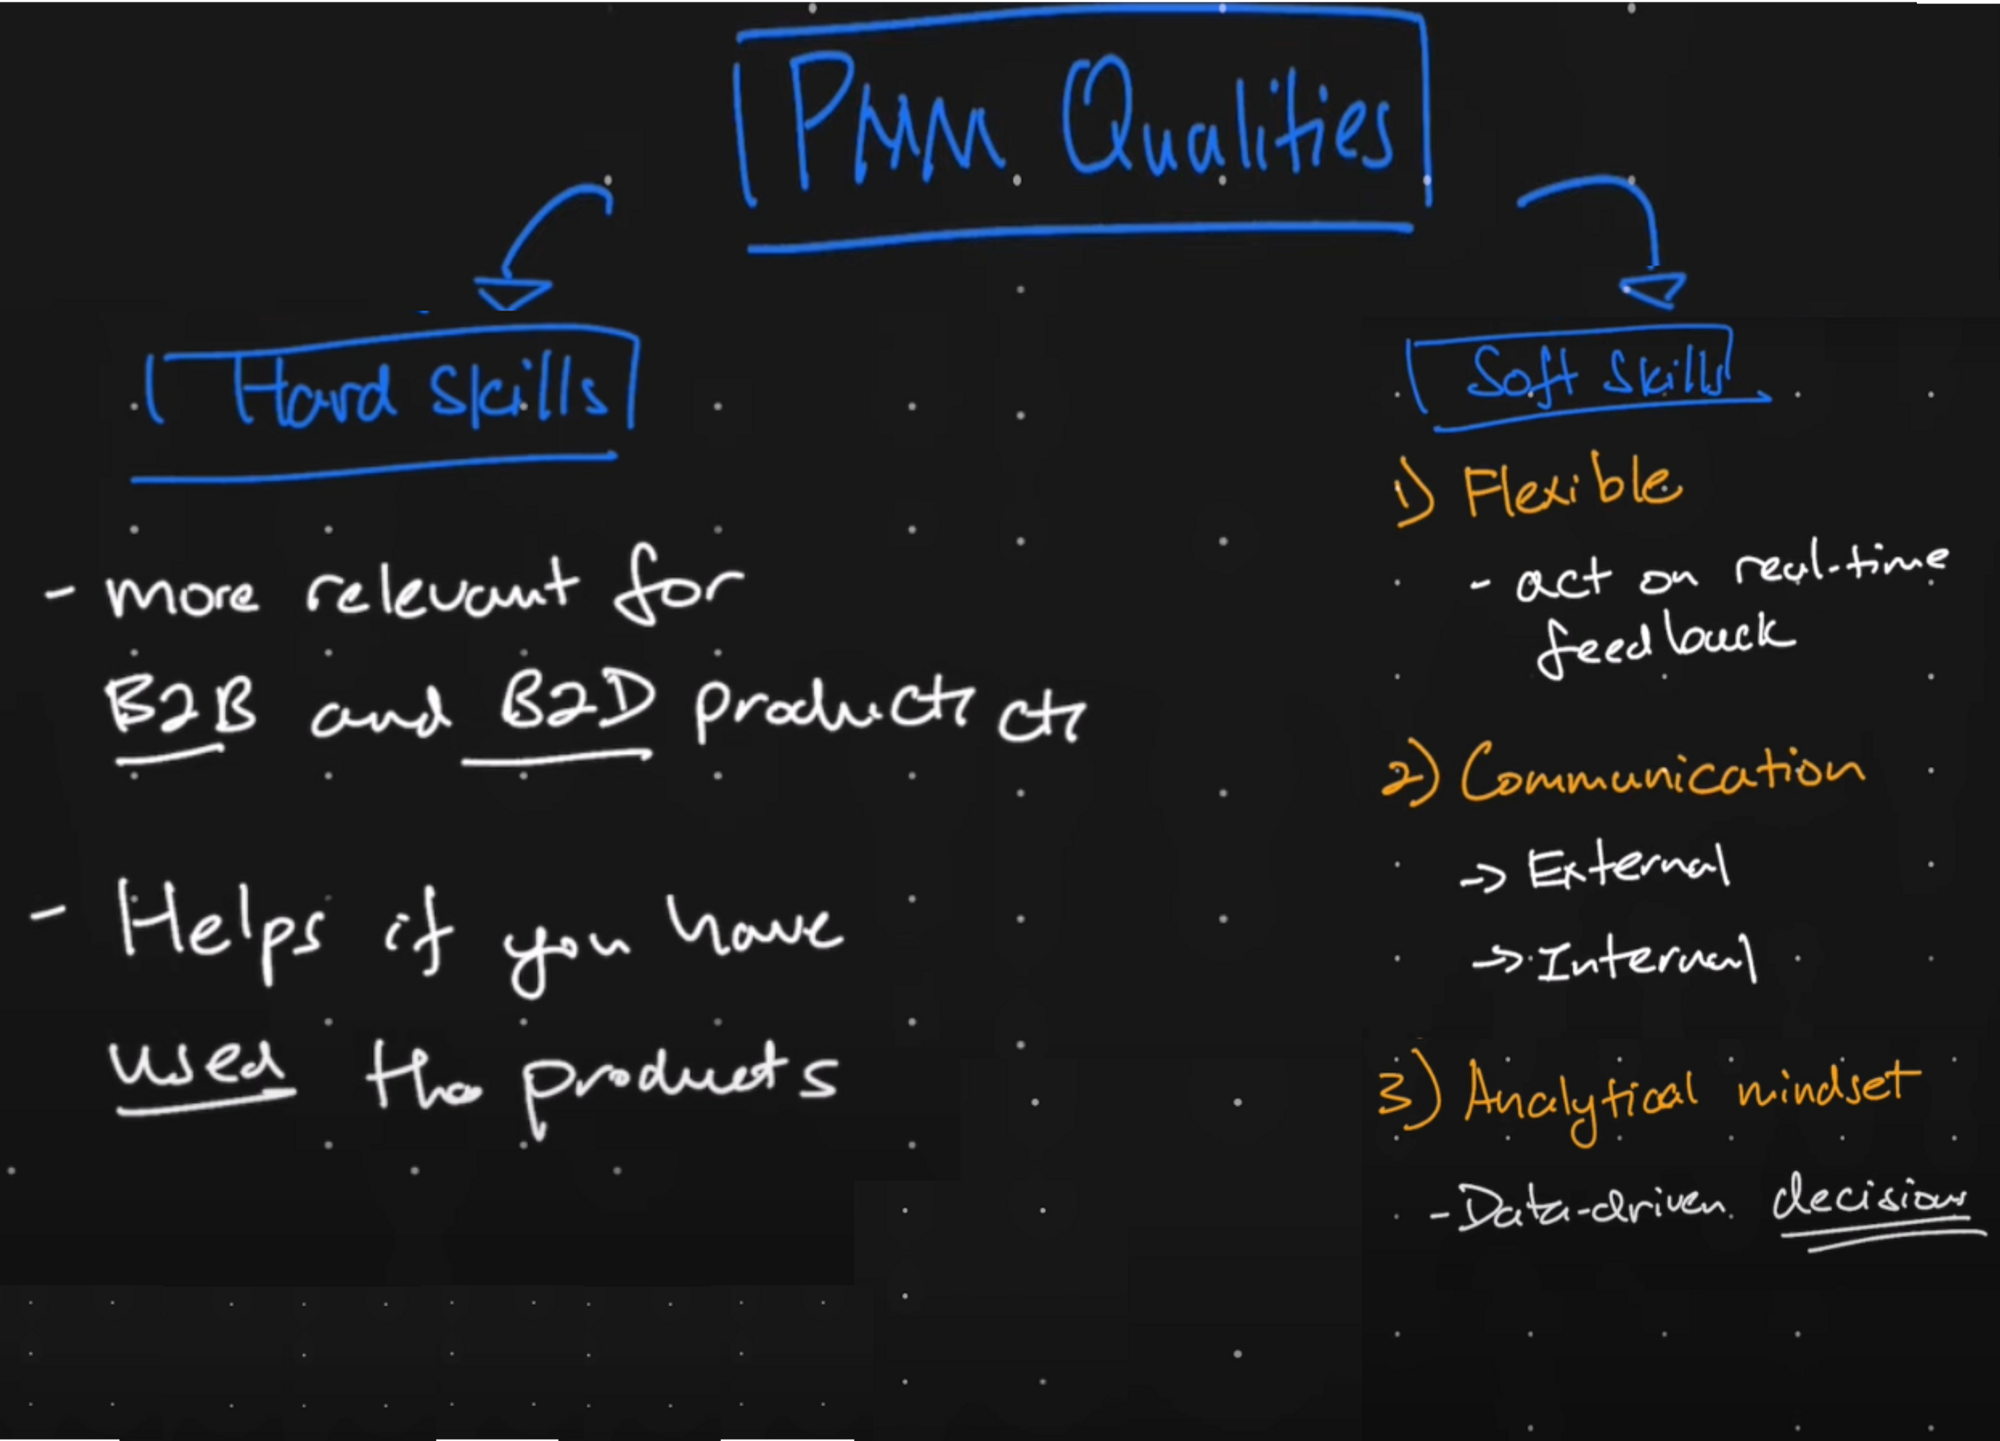 PMM Qualities
Hard Skills
- more relevant for
B2B and B2D product
- Helps if you have
used the products
Soft Skills
1) Flexible
- act on real-time
feedback
2) Communication
→ External
→ Internal
3) Analytical mindset
- Data-driven decisions